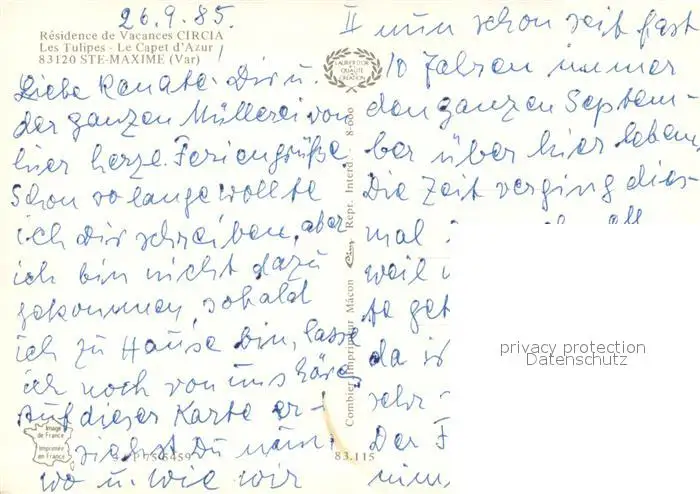 26.9.85.
Résidence de Vacances CIRCIA
Les Tulipes - Le Capet d'Azur
83120 STE-MAXIME (Var)
Liebe Renate! Dir u.
der ganzen Müllerei von
hier herzl. Feriengrüße
Schon so lange wollte
ich Dir schreiben, aber
ich bin nicht dazu
gekommen, sobald
ich zu Hause bin, lasse
ich noch von uns hören
Auf dieser Karte er-
siehst Du
wo u. wie wir
Image
de France
Imprimée
en France
83.115
LAURIER D'OR
DE LA
QUALITÉ
CREATION
Combier Imprimeur Mâcon Cim Repr. Interd. - 8-600
II nun schon seit fast
10 Jahren immer
den ganzen Septem-
ber über hier leben,
Die Zeit verging dies-
mal
weil
te
da
sehr
Der
privacy protection
Datenschutz